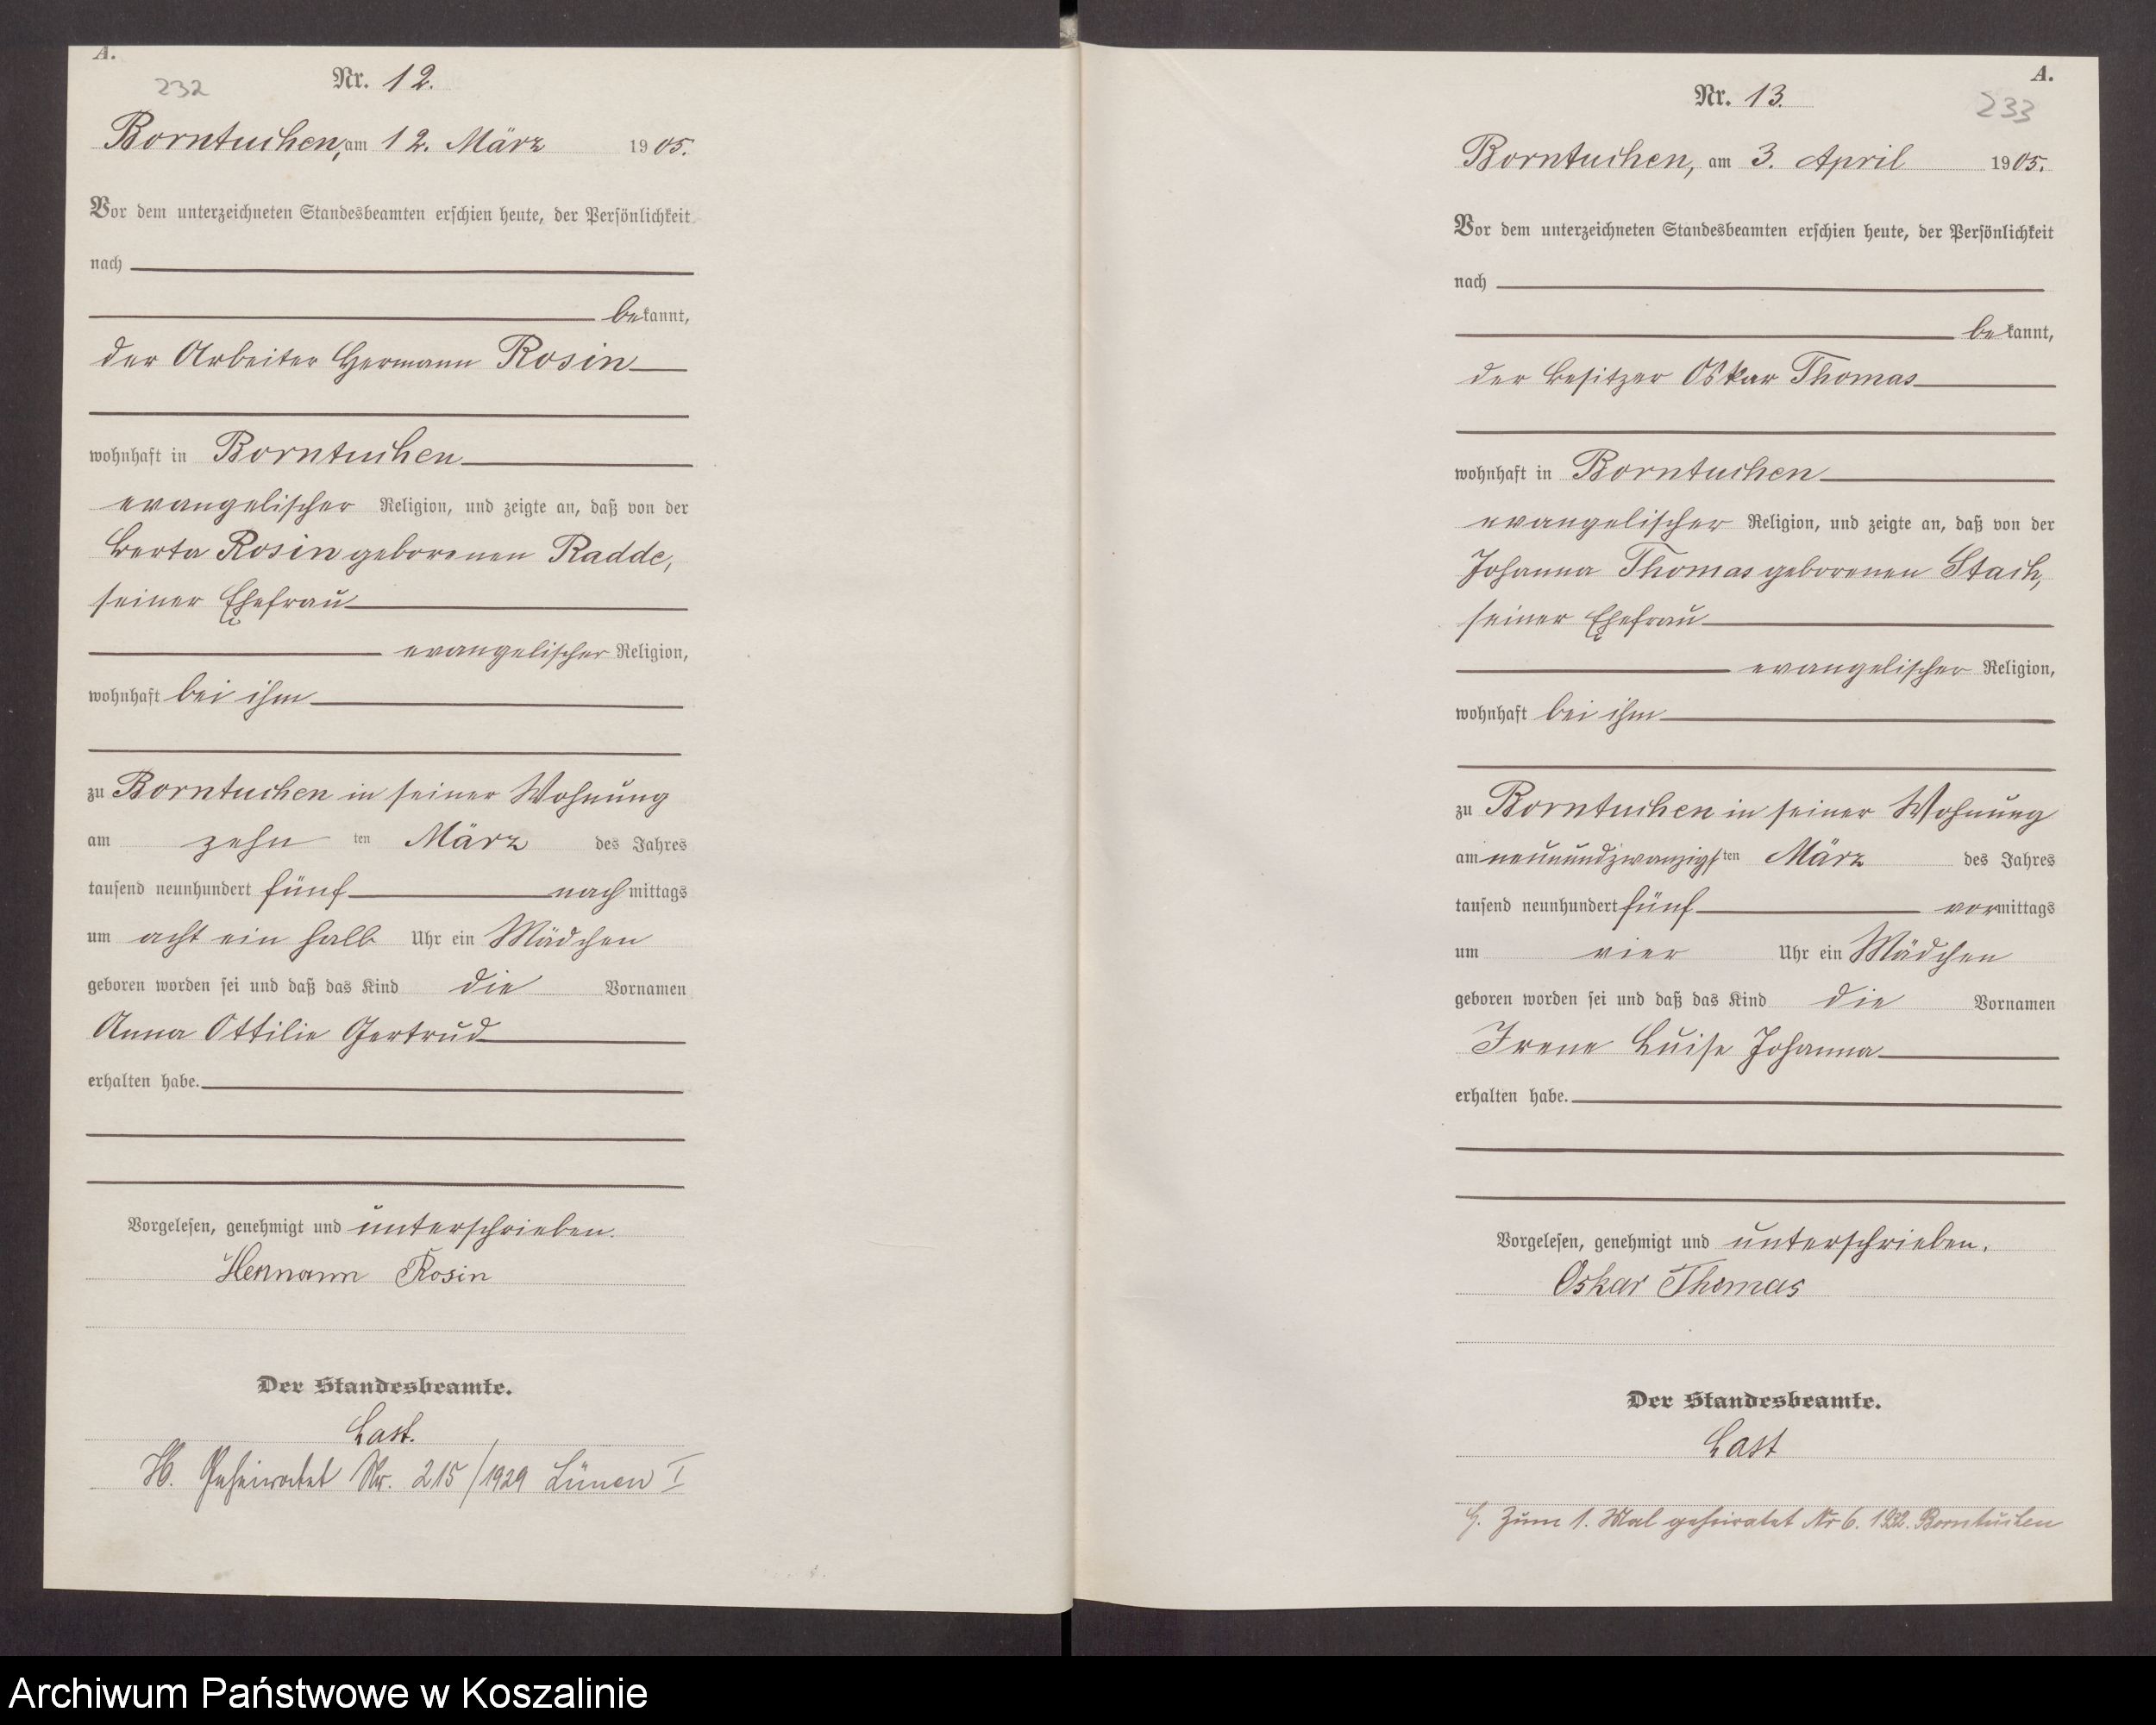 A.
232
Nr. 12.
Borntuchen, am 12. März 1905.
Vor dem unterzeichneten Standesbeamten erschien heute, der Persönlichkeit
nach
bekannt,
der Arbeiter Hermann Rosin
wohnhaft in Borntuchen
evangelischer Religion, und zeigte an, daß von der
Berta Rosin geborenen Radde,
seiner Ehefrau
evangelischer Religion,
wohnhaft bei ihm
zu Borntuchen in seiner Wohnung
am zehn ten März des Jahres
tausend neunhundert fünf nachmittags
um acht ein halb Uhr ein Mädchen
geboren worden sei und daß das Kind die Vornamen
Anna Ottilie Gertrud
erhalten habe.
Vorgelesen, genehmigt und unterschrieben.
Hermann Rosin
Der Standesbeamte.
Last.
H. Geheiratet Nr. 215/1929 Lünen I
A.
233
Nr. 13.
Borntuchen, am 3. April 1905.
Vor dem unterzeichneten Standesbeamten erschien heute, der Persönlichkeit
nach
bekannt,
der Besitzer Oskar Thomas
wohnhaft in Borntuchen
evangelischer Religion, und zeigte an, daß von der
Johanna Thomas geborenen Stach,
seiner Ehefrau
evangelischer Religion,
wohnhaft bei ihm
zu Borntuchen in seiner Wohnung
am neunundzwanzigsten März des Jahres
tausend neunhundert fünf vormittags
um vier Uhr ein Mädchen
geboren worden sei und daß das Kind die Vornamen
Irene Luise Johanna
erhalten habe.
Vorgelesen, genehmigt und unterschrieben.
Oskar Thomas
Der Standesbeamte.
Last
H. Zum 1. Mal geheiratet Nr 6. 1932. Borntuchen
Archiwum Państwowe w Koszalinie